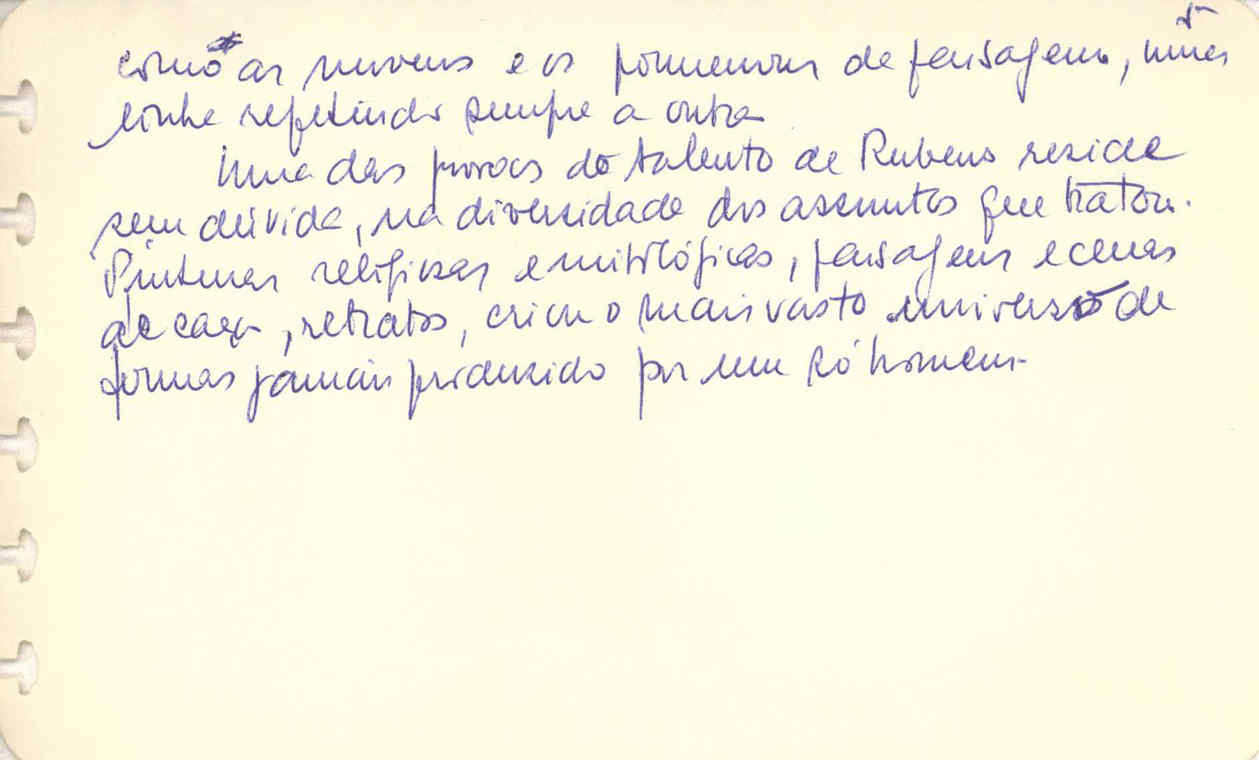 como as nuvens e os pormenores de paisagem, numa
linha repetindo sempre a outra
Uma das provas do talento de Rubens reside
sem dúvida, na diversidade dos assuntos que tratou.
Pinturas religiosas e mitológicas, paisagens e cenas
de caça, retratos, criou o mais vasto universo de
formas jamais produzido por um só homem.